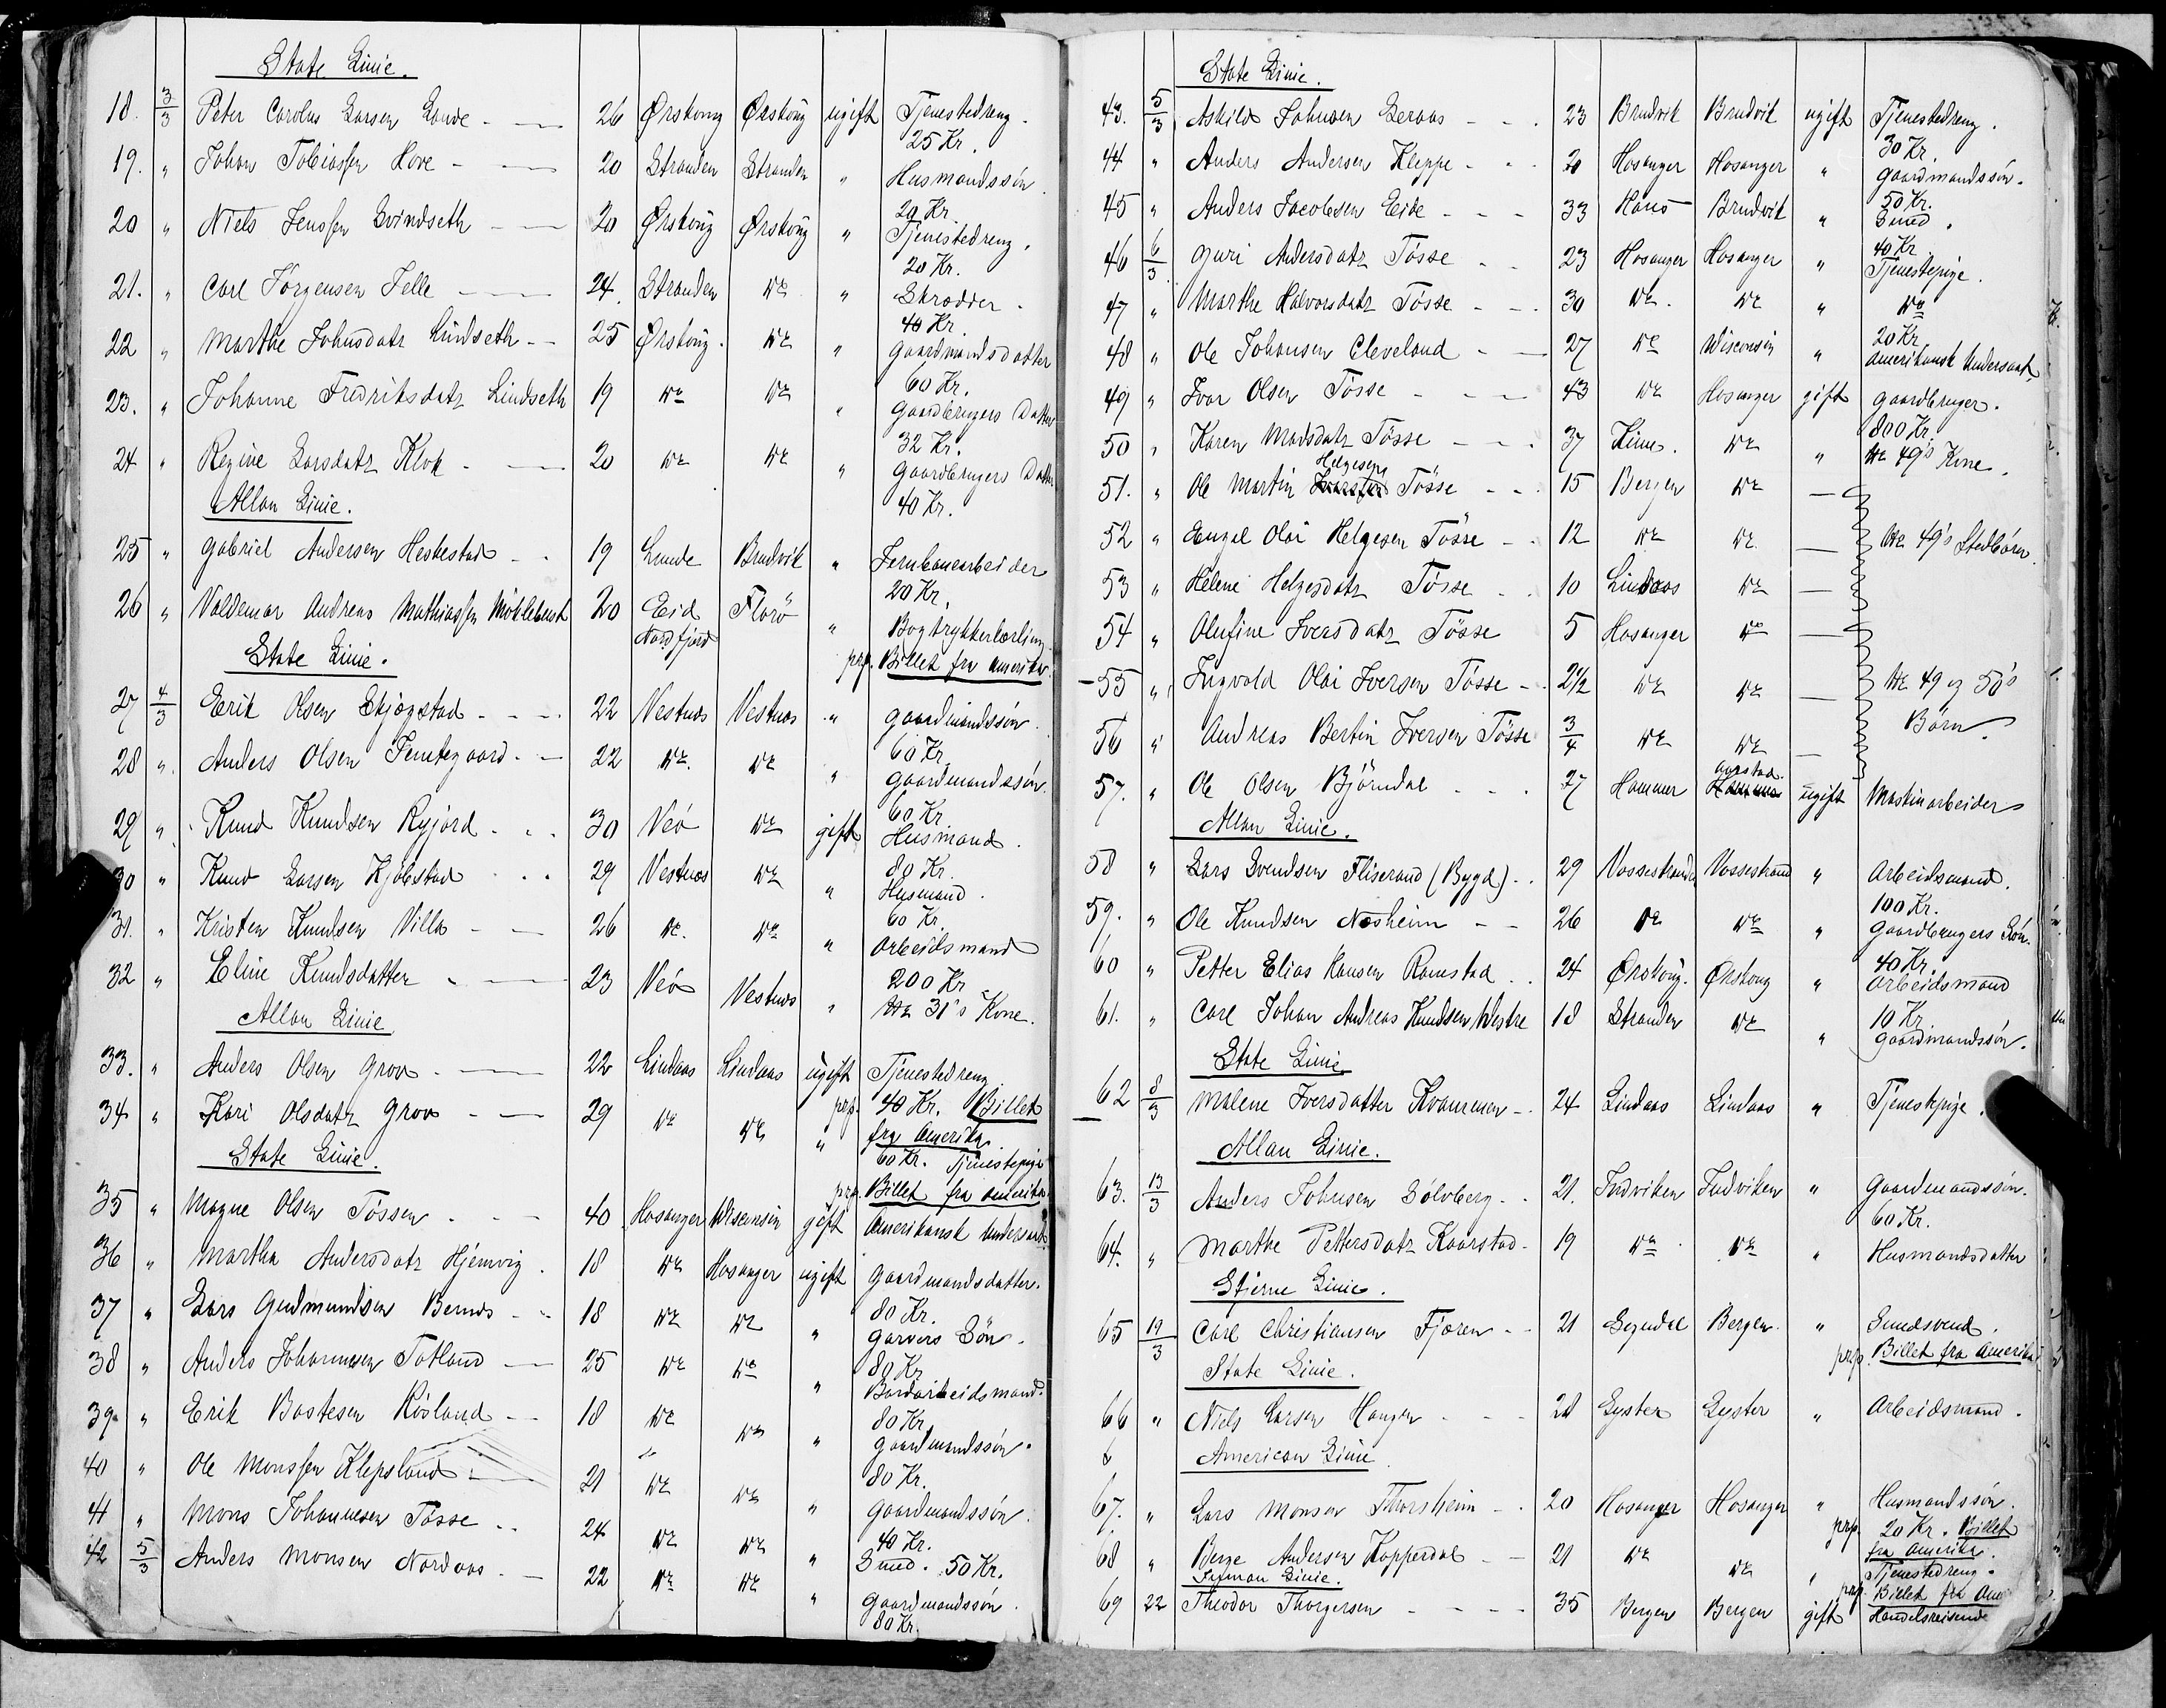 State Linie.
18. 3/3 Peter Carolus Larsen Lande 26 Ørskoug Ørskoug ugift Tjenestedreng.
25 Kr.
19. " Johan Tobiassen Hove 20 Stranden Stranden " Husmandssøn
20 Kr.
20 " Niels Jenssen Svindseth 20 Ørskoug Ørskoug " Tjenestedreng.
20 Kr.
21. " Carl Jørgensen Felle 24. Stranden do " Skrædder.
40 Kr.
22 " Marthe Johnsdatr Lindseth 25 Ørskoug. do " Gaardmandsdatter
60 Kr.
23. " Johanne Fredriksdatr Lindseth 19 do do " Gaardbrugers Datter
32 Kr.
24 " Regine Larsdatr Klok 20 do do " Gaardbrugers Datter
40 Kr.
Allan Linie.
25 " Gabriel Andersen Heskestad 19 Lunde Brudvik " Jernbanearbeider
20 Kr.
26 " Valdemar Andreas Mathiassen Myklebust 20 Eid Florø " Bogtrykkerlærling
Nordfjord prp. Billet fra Amerika.
State Linie.
27 4/3 Erik Olsen Skjøgstad 22 Vestnæs Vestnæs " Gaardmandssøn.
60 Kr.
28 " Anders Olsen 22 do do " Gaardmandssøn.
60 Kr.
29 " Knud Knudsen Ryjord 30 Veö do gift Husmand.
80 Kr.
30 " Knud Larsen Kjølstad 29 Vestnæs do " Husmand.
60 Kr.
31. " Kristen Knudsen Villa 26 do do " Arbeidsmand
200 Kr
32 " Eline Knudsdatter 23 Veö Vestnæs " No 31's Kone.
Allan Linie
33. " Anders Olsen Grov 22 Lindaas Lindaas ugift Tjenestedreng
prp. 40 Kr. Billet
34 " Kari Olsdatr Grov 29 do do " fra Amerika
60 Kr. Tjenestepige
State Linie.
prp. Billet fra Amerika.
35 " Mogne Olsen Tøssen 40 Hosanger Wisconsin gift Amerikansk Undersaat
36 " Martha Andersdatr Hjemvig 18 do Hosanger ugift Gaardmandsdatter.
80 Kr.
37 " Lars Gudmundsen Bernes 18 do do " Garvers Søn.
80 Kr
38 " Anders Johannesen Totland 25 do do " Bordarbeidsmand.
80 Kr.
39 " Erik Bastesen Røsland 18 do do " Gaardmandssøn.
80 Kr.
40 " Ole Monssen Klepsland 21 do do " Gaardmandssøn.
40 Kr.
41 " Mons Johannesen Tøsse 24 do do " Smed. 50 Kr.
42 5/3 Anders Monsen Nordaas 22 do do " Gaardmandssøn.
80 Kr.
State Linie.
43. 5/3 Askild Johnsen Leraas 23 Brudvik Brudvik ugift Tjenestedreng.
30 Kr.
44 " Anders Andersen Kleppe 20 Hosanger Hosanger " Gaardmandssøn.
50 Kr.
45 " Anders Jacobsen Eide 33 Haus Brudvik " Smed.
40 Kr
46 6/3 Guri Andersdatr Tøsse 23 Hosanger Hosanger " Tjenestepige.
47 " Marthe Halvorsdatr Tøsse 30 do. do " do
20 Kr
48 " Ole Johansen Cleveland 27 do Wisconsin " Amerikansk Undersaat
49 " Ivar Olsen Tøsse 43 do Hosanger gift Gaardbruger.
800 Kr.
50 " Karen Madsdatr Tøsse 37 Kinn. do " No 49's Kone.
Helgesen
51. " Ole Martin Iversen Tøsse 15 Bergen do —
52 " Engel Olai Helgesen Tøsse 12 do do. — No 49's Stedbørn.
53 " Helene Helgesdatr Tøsse 10 Lindaas do —
54 " Olufine Iversdatr Tøsse 5 Hosanger do —
55 " Ingvald Olai Iversen Tøsse 2 1/2 do do — No 49 og 50's
56 " Andreas Bertin Iversen Tøsse 3/4 do do — Børn
Aarstad.
57. " Ole Olsen Bjørndal 27 Hammer Hammer ugift Maskinarbeider
Allan Linie.
58 " Lars Svendsen Fliserand (Bygd) 29 Vossestranden Vossestrand " Arbeidsmand.
100 Kr.
59. " Ole Knudsen Nesheim 26 do do " Gaardbrugers Søn.
40 Kr.
60 " Petter Elias Hansen Ramstad 24 Ørskoug. Ørskoug " Arbeidsmand
10 Kr.
61. " Carl Johan Andreas Knudsen Westre 18 Stranden do " Gaardmandssøn.
State Linie
62 8/3 Malene Iversdatter Kvammen 24 Lindaas Lindaas " Tjenestepige.
Allan Linie.
63. 13/3 Anders Johnsen Sølvberg 21. Indviken Indviken " Gaardmandssøn.
60 Kr.
64. " Marthe Pettersdatr Kaarstad 19 do do " Husmandsdatter
Stjerne Linie.
65 19/3 Carl Christiansen Fjæren 21 Sogndal Bergen " Smedsvend.
prp. Billet fra Amerika
State Linie.
66 " Niels Larsen Haugen 28 Lyster Lyster " Arbeidsmand.
American Linie
67. " Lars Monsen Thorsheim 20 Hosanger Hosanger " Husmandssøn.
prp. 20 Kr. Billet
fra Amerika.
68 " Berge Andersen Kopperdal 21 do do " Tjenestedreng.
Inman Linie. prp. Billet fra Ame
69 22 Theodor Thorgersen 35 Bergen Bergen gift Handelsreisende